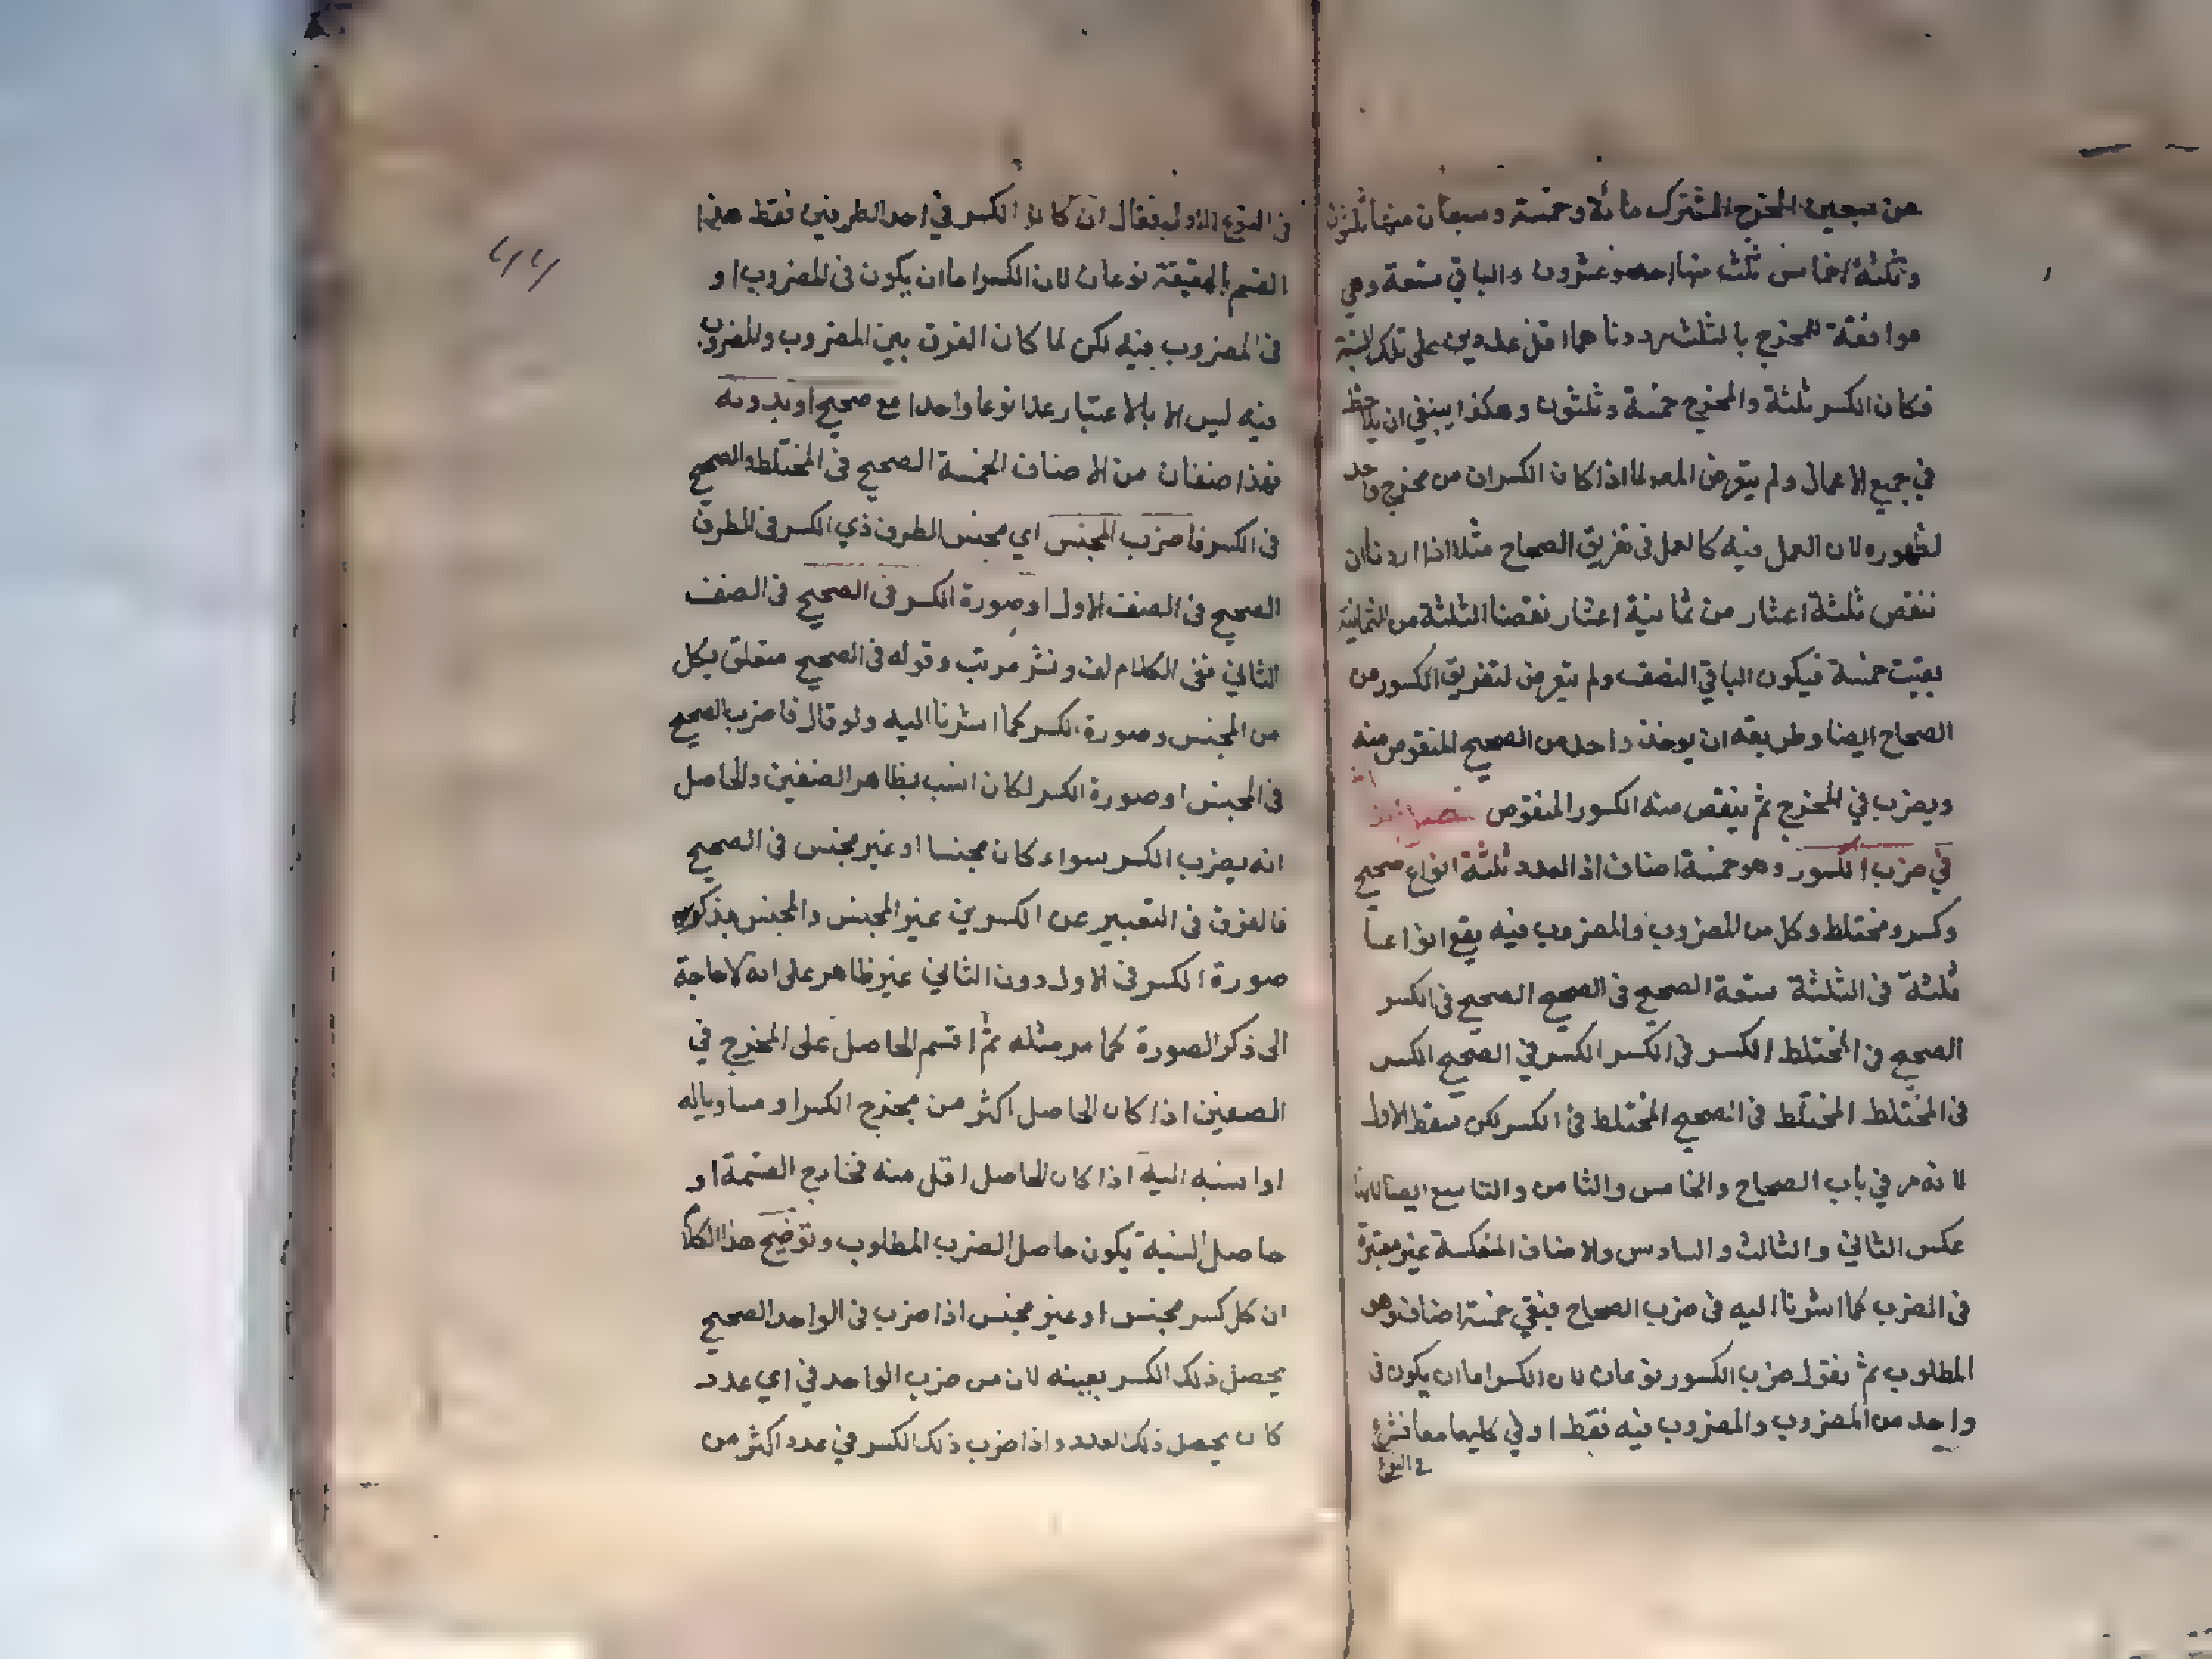 من سبعين المخرج المشترك مائة وخمسة وسبعان منها ثلثون
وثلثة اخماس ثلث منها احد وعشرون والباقي تسعة وهي
موافقة للمخرج بالثلث رددناهما اقل عددين على تلك النسبة
فكان الكسر ثلثة والمخرج خمسة وثلثون وهكذا ينبغي ان يلاحظ
في جميع الاعمال ولم يتعرض المصـ لما اذا كان الكسران من مخرج واحد
لظهوره لان العمل فيه كالعمل في تفريق الصحاح مثلا اذا اردنا ان
ننقص ثلثة اعشار من ثمانية اعشار نقصنا الثلثة من الثمانية
بقيت خمسة فيكون الباقي النصف ولم يتعرض لتفريق الكسور من
الصحاح ايضا وطريقه ان يوخذ واحد من الصحيح المنقوص منه
ويضرب في المخرج ثم ينقص منه الكسور المنقوص
في ضرب الكسور وهو خمسة اصناف اذ العدد ثلثة انواع صحيح
وكسر ومختلط وكل من المضروب والمضروب فيه يقع انواعا
ثلثة في الثلثة تسعة الصحيح في الصحيح الصحيح في الكسر
الصحيح في المختلط الكسر في الكسر الكسر في الصحيح الكسر
في المختلط المختلط في الصحيح المختلط في الكسر لكن سقط الاول
لانه مر في باب الصحاح والخامس والثامن والتاسع ايضا لانها
عكس الثاني والثالث والسادس والاصناف المنعكسة غير معتبرة
في الضرب كما اشرنا اليه في ضرب الصحاح فبقي خمسة اصناف وهو
المطلوب ثم نقول ضرب الكسور نوعان لان الكسر اما ان يكون في
واحد من المضروب والمضروب فيه فقط او في كليهما معا فشرع
في النوع
في النوع الاول فقال ان كان الكسر في احد الطرفين فقط هذا
القسم بالحقيقة نوعان لان الكسر اما ان يكون في المضروب او
في المضروب فيه لكن لما كان الفرق بين المضروب والمضروب
فيه ليس الا بالاعتبار عدا نوعا واحدا مع صحيح او بدونه
فهذا صنفان من الاصناف الخمسة الصحيح في المختلط والصحيح
في الكسر فاضرب المجنس اي مجنس الطرف ذي الكسر في الطرف
الصحيح في الصنف الاول او صورة الكسر في الصحيح في الصنف
الثاني ففي الكلام لف ونشر مرتب وقوله في الصحيح متعلق بكل
من المجنس وصورة الكسر كما اشرنا اليه ولو قال فاضرب الصحيح
في المجنس او صورة الكسر لكان انسب بظاهر الصنفين والحاصل
انه يضرب الكسر سواء كان مجنسا او غير مجنس في الصحيح
فالفرق في التعبير عن الكسرين غير المجنس والمجنس بذكر
صورة الكسر في الاول دون الثاني غير ظاهر على انه لا حاجة
الى ذكر الصورة كما مر مثله ثم اقسم الحاصل على المخرج في
الصنفين اذا كان الحاصل اكثر من مخرج الكسر او مساويا له
او انسبه اليه اذا كان الحاصل اقل منه فخارج القسمة او
حاصل النسبة يكون حاصل الضرب المطلوب وتوضيح هذا الكلام
ان كل كسر مجنس او غير مجنس اذا ضرب في الواحد الصحيح
يحصل ذلك الكسر بعينه لان من ضرب الواحد في اي عدد
كان يحصل ذلك العدد واذا ضرب ذلك الكسر في عدد اكثر من